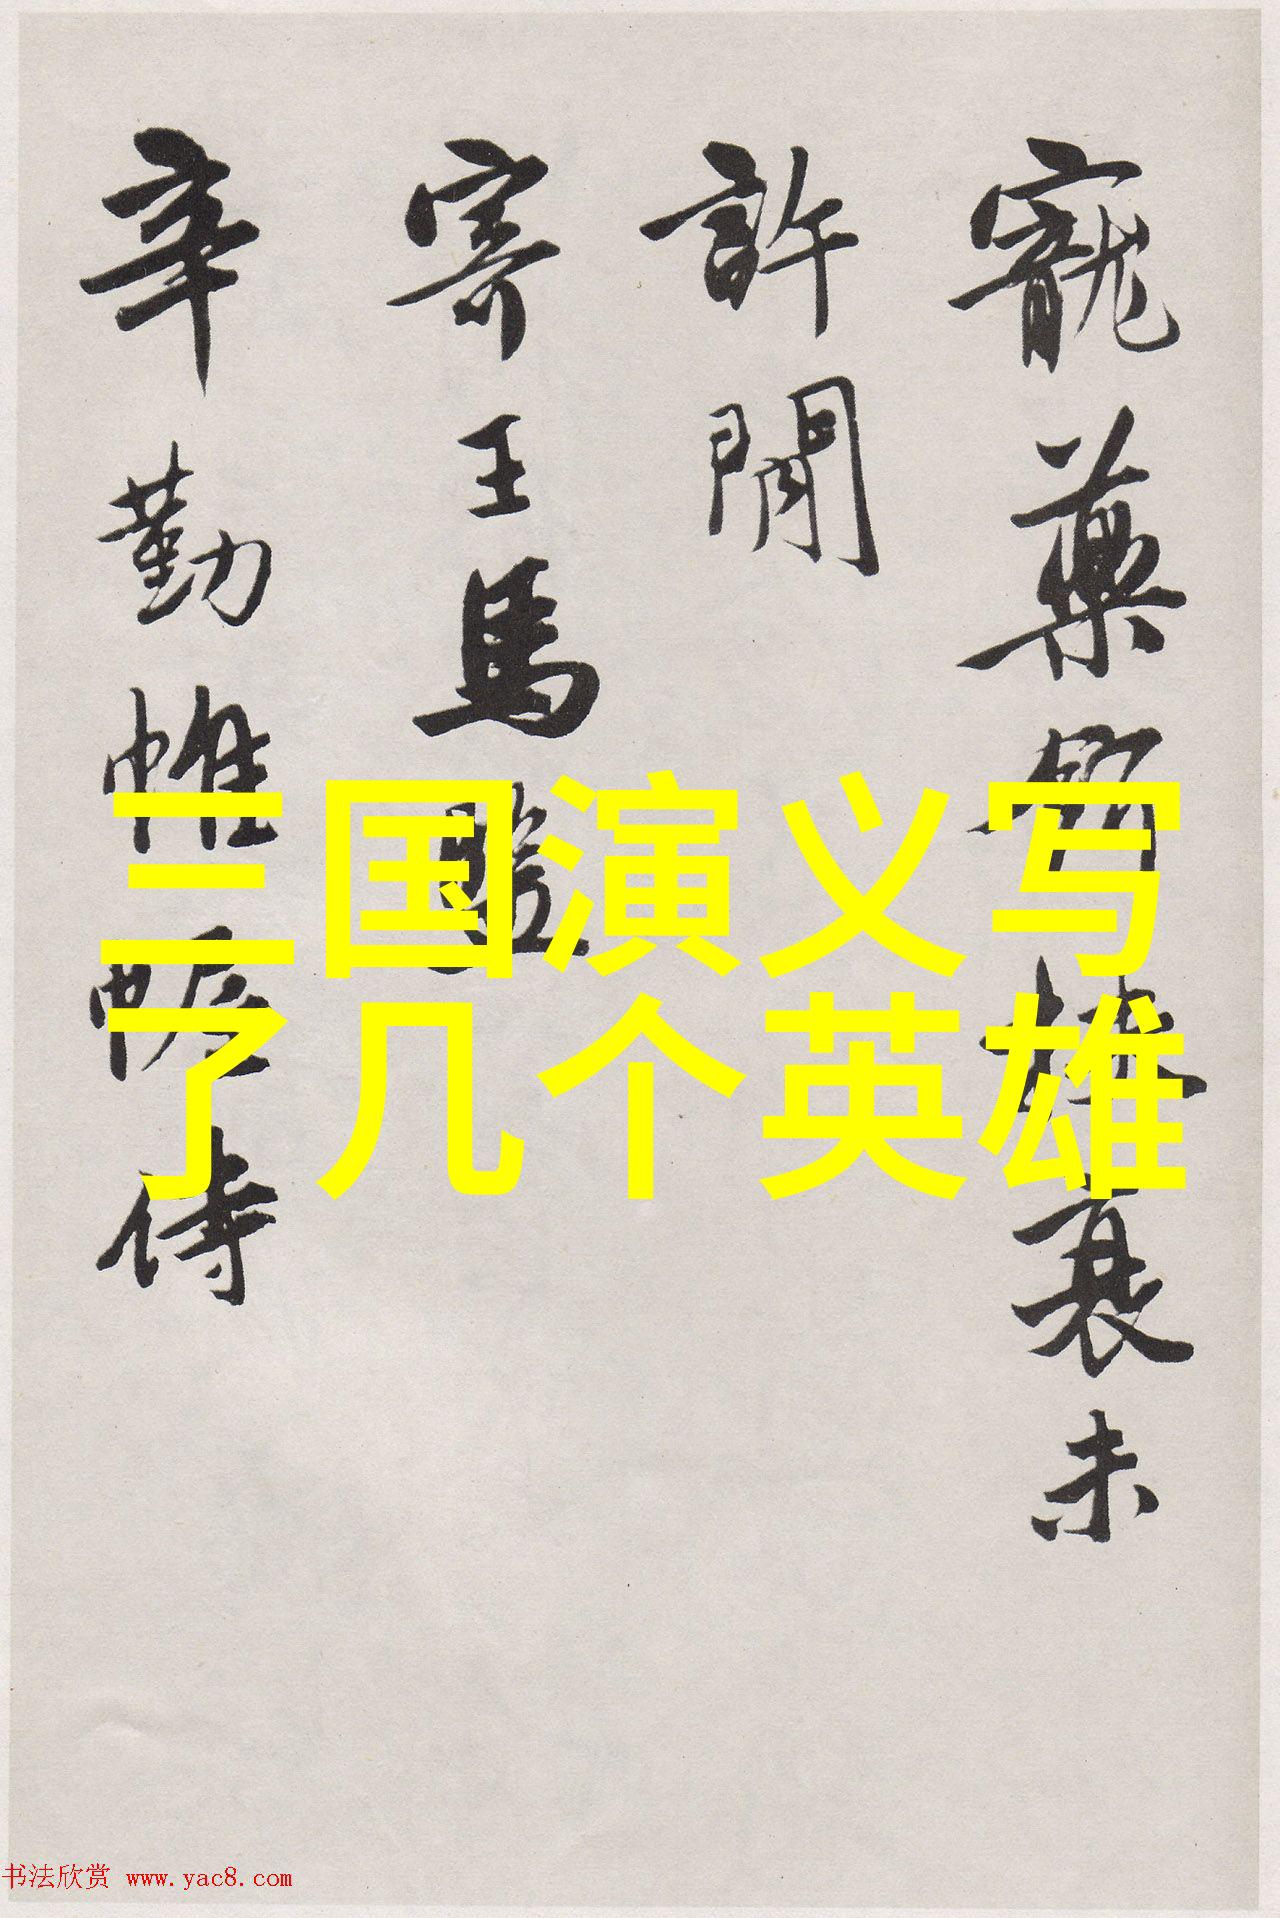 三国演义写
了几个英雄
寵藥衰未
許閒
寄王馬
辛勤帷幄侍
书法欣赏 www.yac8.com